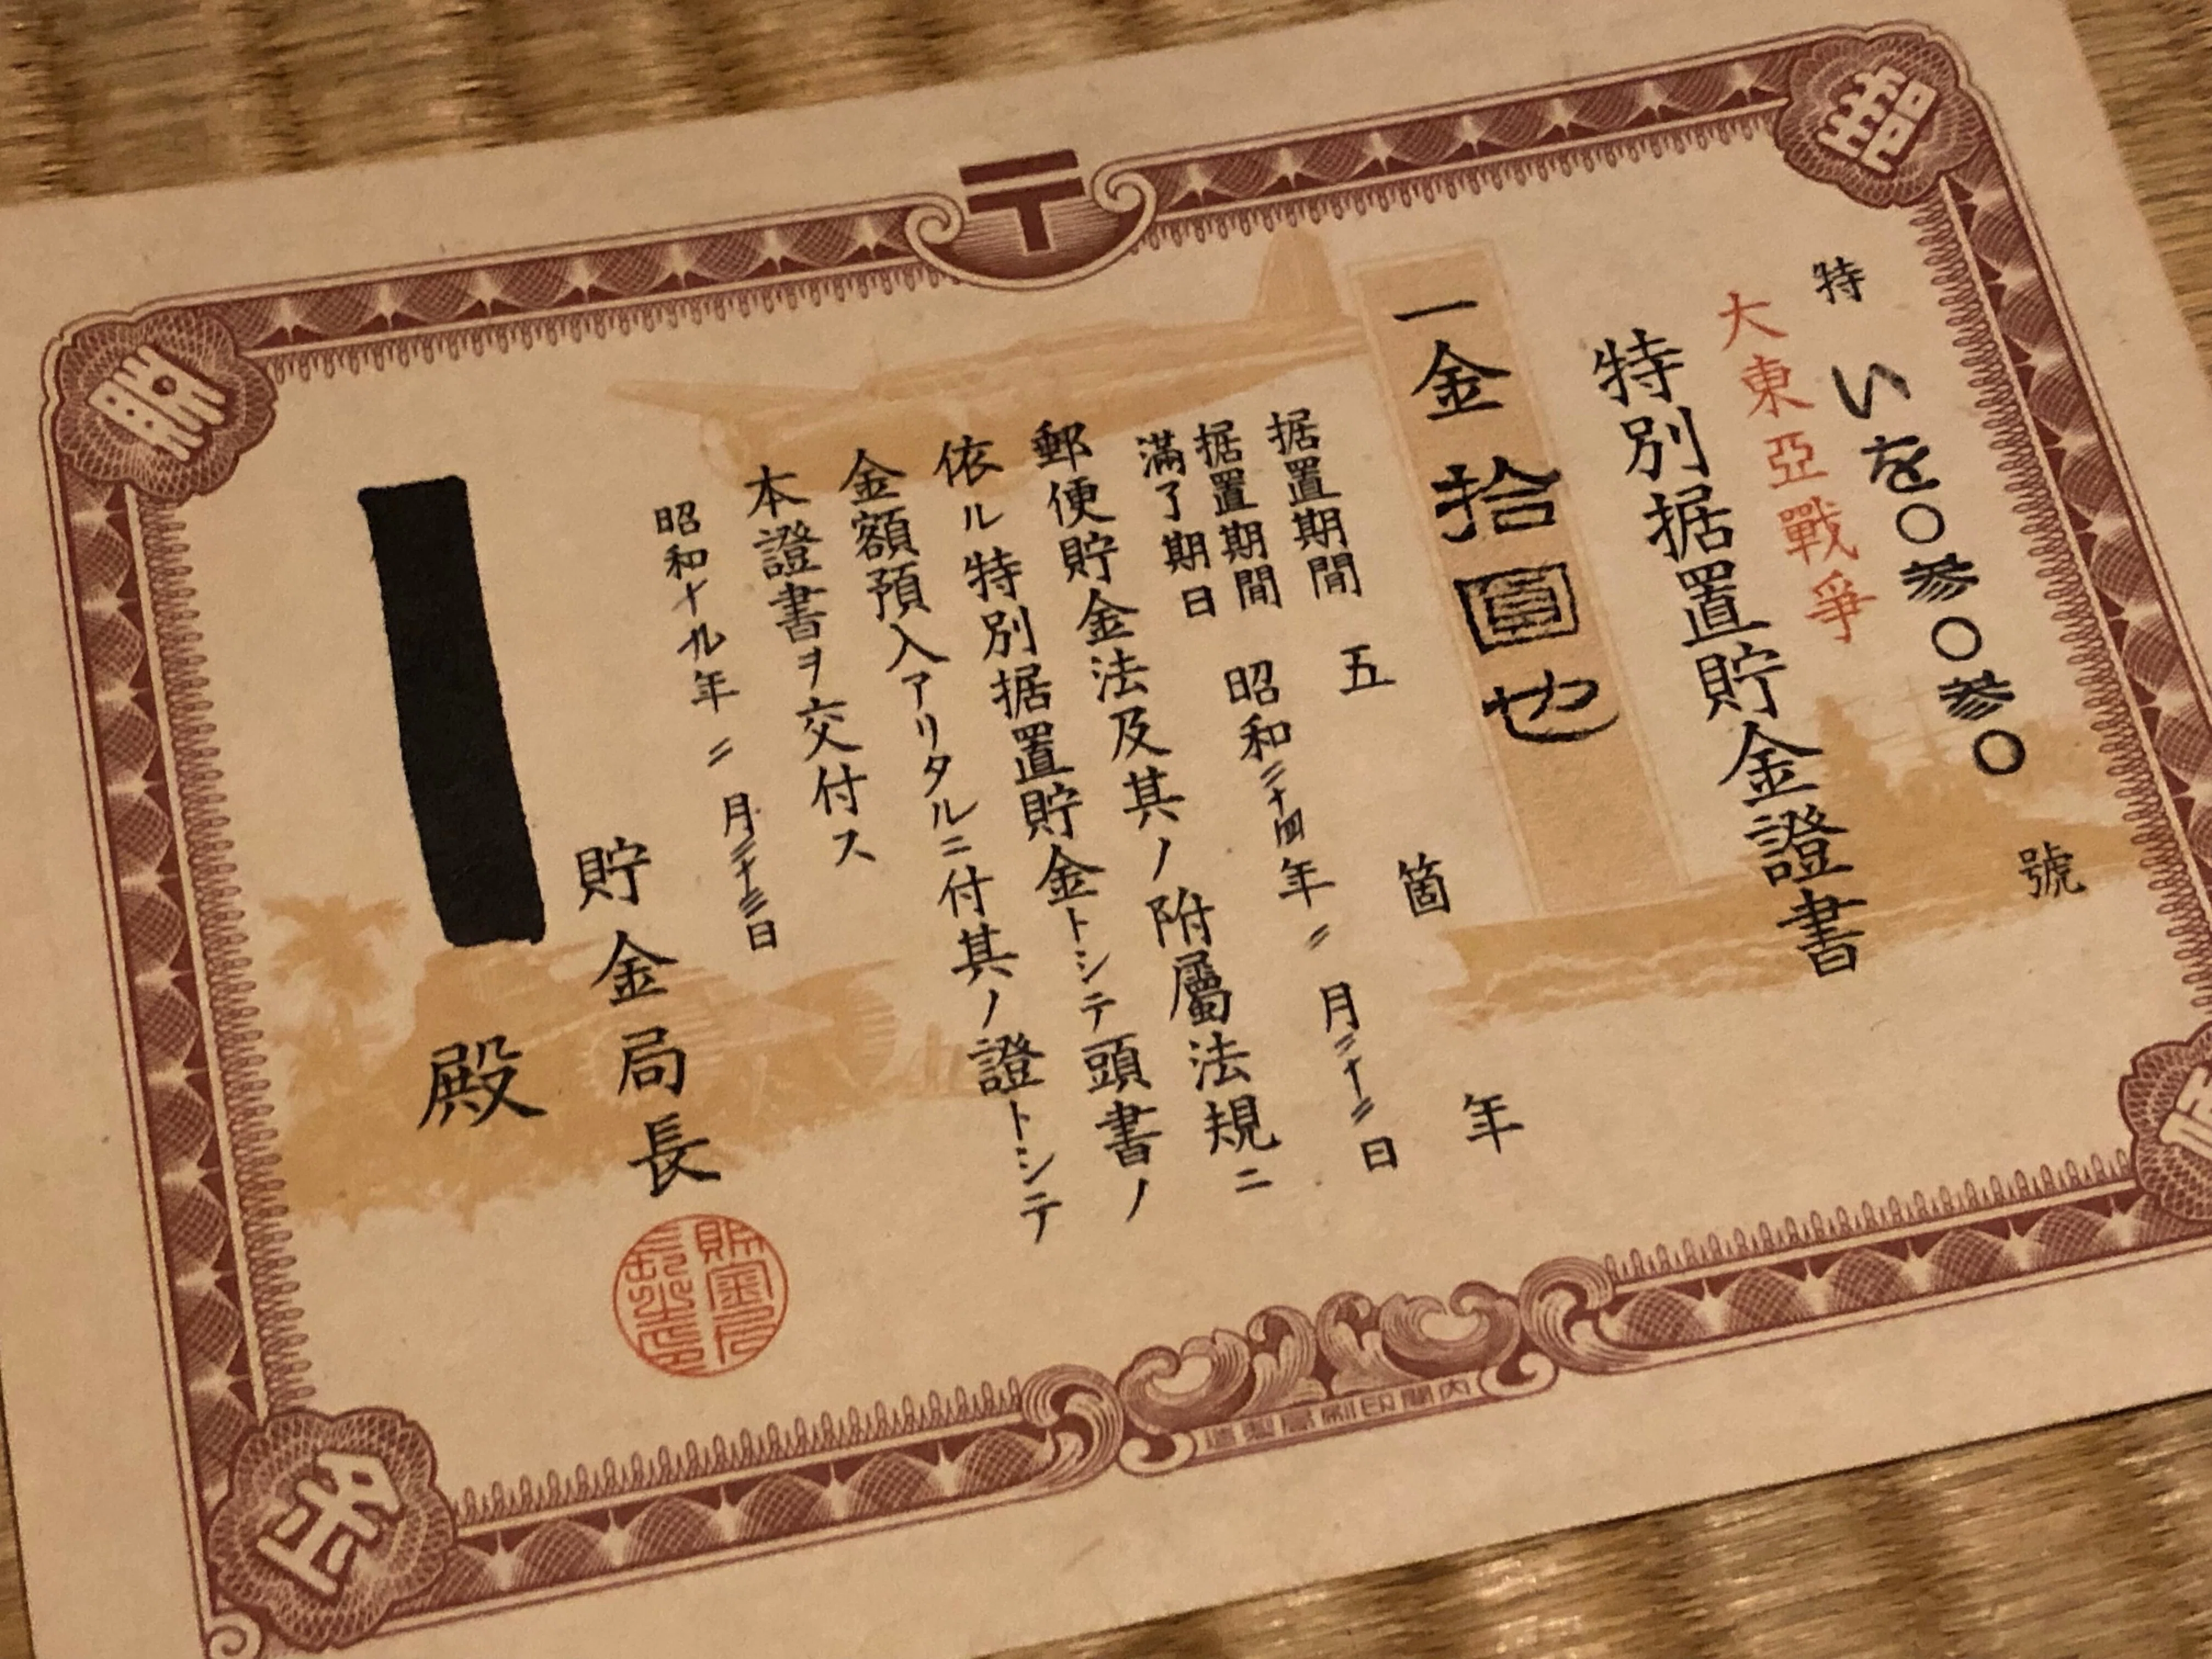 郵
〒
貯
特いを〇参〇参〇號
大東亞戰爭
特別据置貯金證書
一金拾圓也
据置期間 五箇年
据置期間滿了期日 昭和二十四年二月二十二日
郵便貯金法及其ノ附屬法規ニ
依ル特別据置貯金トシテ頭書ノ
金額預入アリタルニ付其ノ證トシテ
本證書ヲ交付ス
昭和十九年二月二十三日
貯金局長
殿
金
内閣印刷局製造